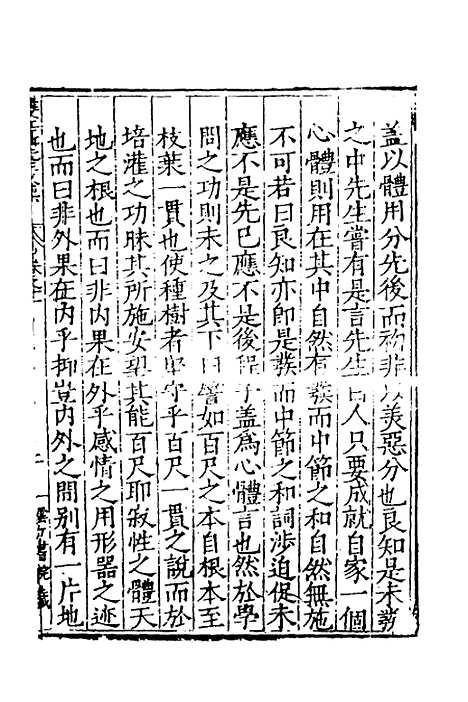 盖以體用分先後而初非以美惡分也良知是未𤼵
之中先生嘗有是言先生曰人只要成就自家一個
心體則用在其中自然有𤼵而中節之和自然無施
不可若曰良知亦即是𤼵而中節之和詞涉迫促未
應不是先已應不是後程子盖為心體言也然於學
問之功則未之及其下曰譬如百尺之木自根本至
枝葉一貫也使種樹者堅守乎百尺一貫之說而於
培灌之功昧其所施安望其能百尺耶寂性之體天
地之根也而曰非内果在外乎感情之用形器之迹
也而曰非外果在内乎抑豈内外之間别有一片地